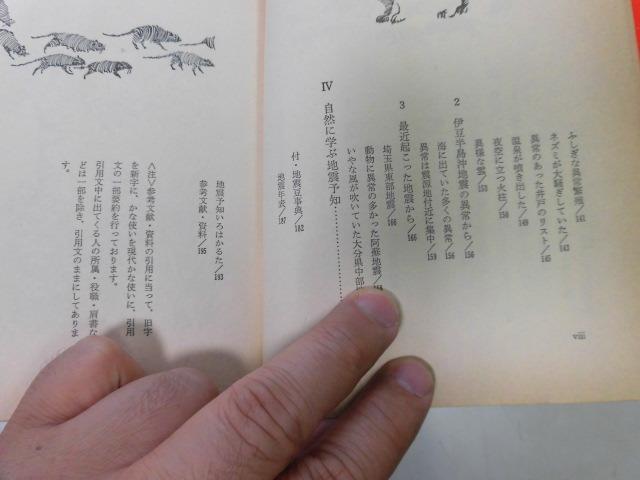 ふしぎな異常繁殖/141
ネズミが大騒ぎしていた/142
異常のあった井戸のリスト/145
温泉が噴き出した/149
夜空に立つ火柱/150
異様な雲/153
2 伊豆半島沖地震の異常から/156
海に出ていた多くの異常/156
異常は震源地付近に集中/159
3 最近起こった地震から/166
埼玉県東部地震/166
動物に異常の多かった阿蘇地震
いやな風が吹いていた大分県中部
IV 自然に学ぶ地震予知
付・地震豆事典/182
地震年表/187
viii
地震予知いろはかるた/193
参考文献・資料/195
〈注〉参考文献・資料の引用に当って、旧字
を新字に、かな使いを現代かな使いに、引用
文の一部要約を行っております。
引用文中に出てくる人の所属・役職・肩書な
どは一部を除き、引用文のままにしてありま
す。